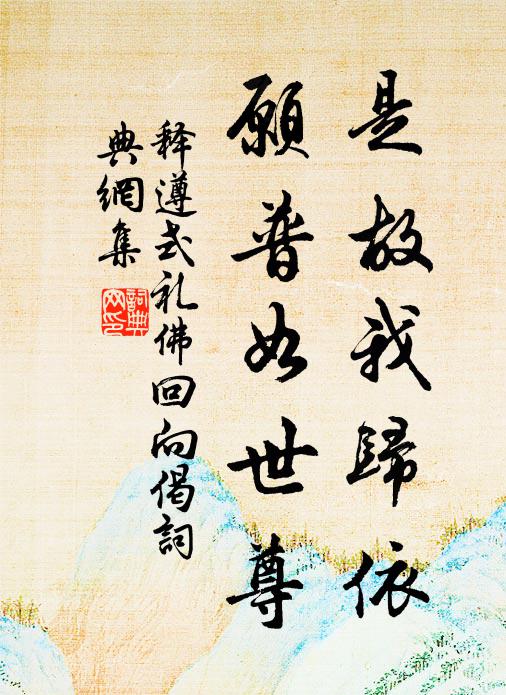 是故我歸依
願普如世尊
释遵式礼佛回向偈詞
典網集
詞典
网印